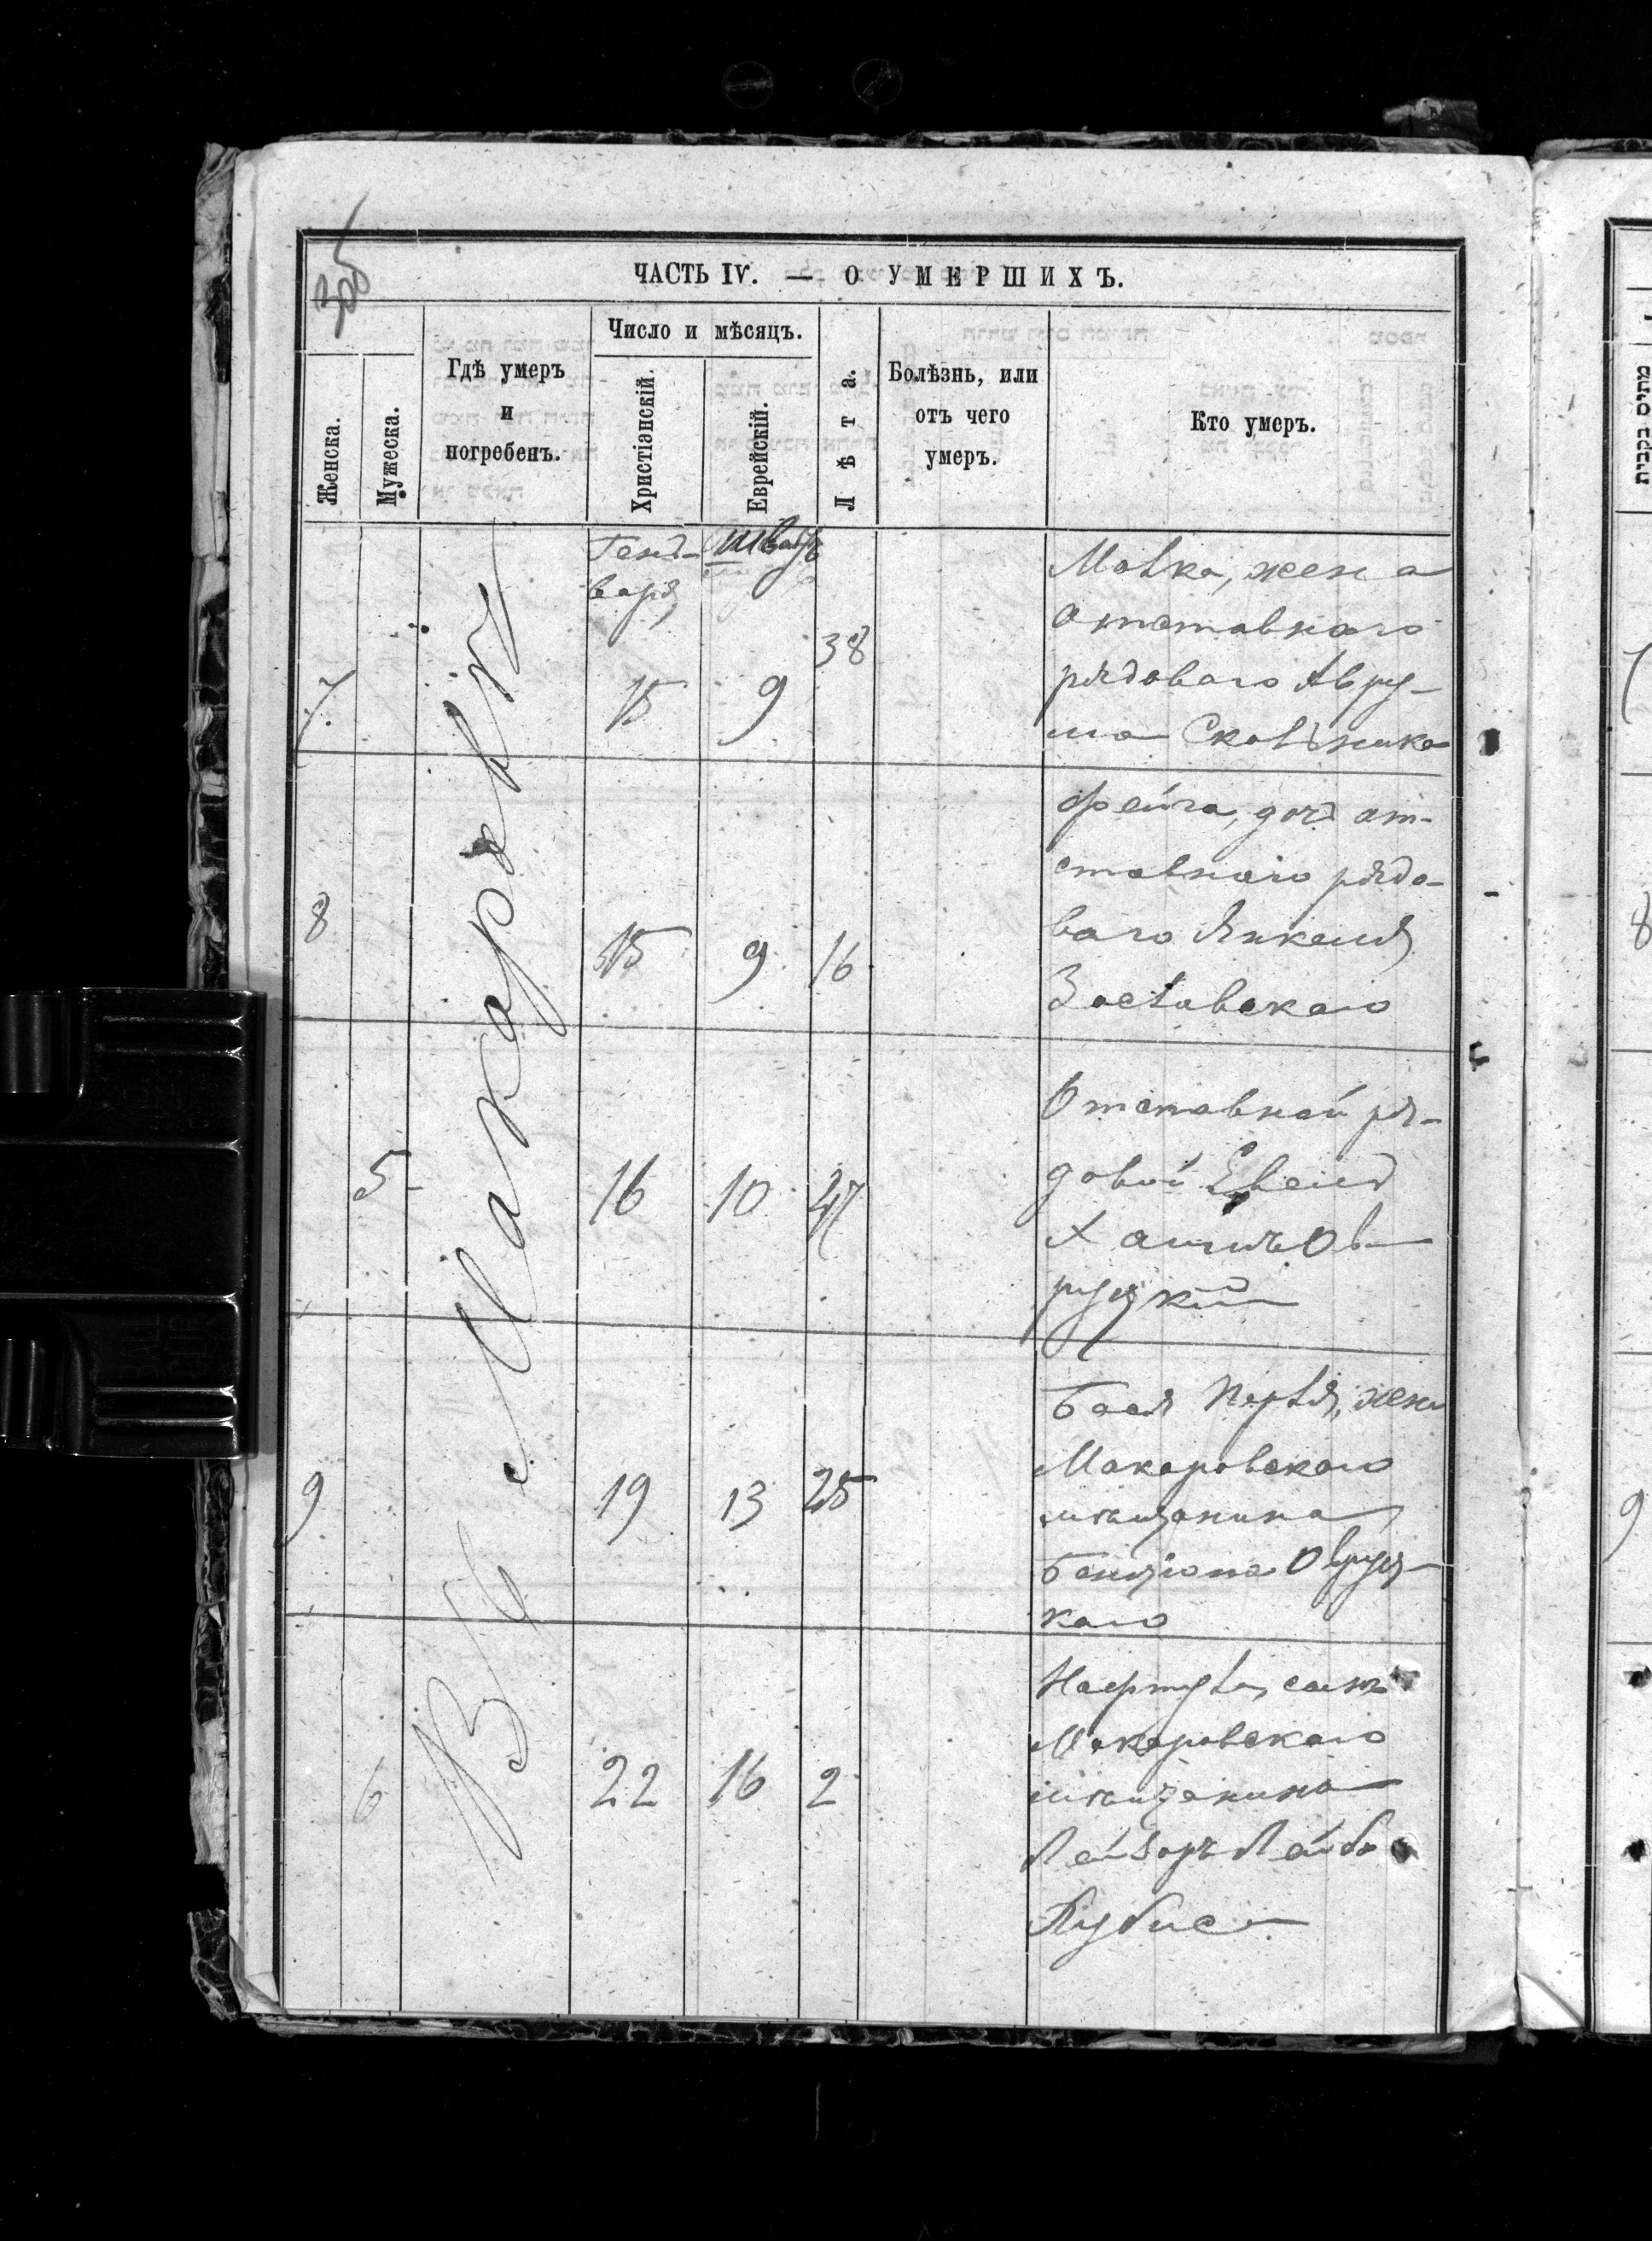 305
ЧАСТЬ IV. — О УМЕРШИХЪ.
Женска.
Мужеска.
Гдѣ умеръ
и
погребенъ.
Число и мѣсяцъ.
Христіанскій.
Еврейскій.
Лѣта.
Болѣзнь, или
отъ чего
умеръ.
Кто умеръ.
Въ Макаровѣ
Генъ-
варя
Шватъ
7
15
9
38
жена
отставнаго
рядоваго Авру-
ма
8
15
9
16
Фейга, дочь от-
ставнаго рядо-
ваго Янкеля
Заславскаго
5
16
10
47
Отставной ря-
довой
Хаимъ Ов-
руцкій
9
19
13
25
Бася Перля, жена
Макаровскаго
мѣщанина
Бенціона Овруц-
каго
6
22
16
2
сынъ
Макаровскаго
мѣщанина
Лейзоръ Лейба
מתים בקבית
7
8
9